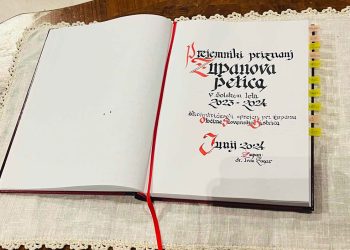 Prejemniki priznanj
Županova
petica
v šolskem letu
2023 - 2024
sprejem pri županu
Občine Slovenska Bistrica
Junij 2024
Župan
dr. Ivan Žagar